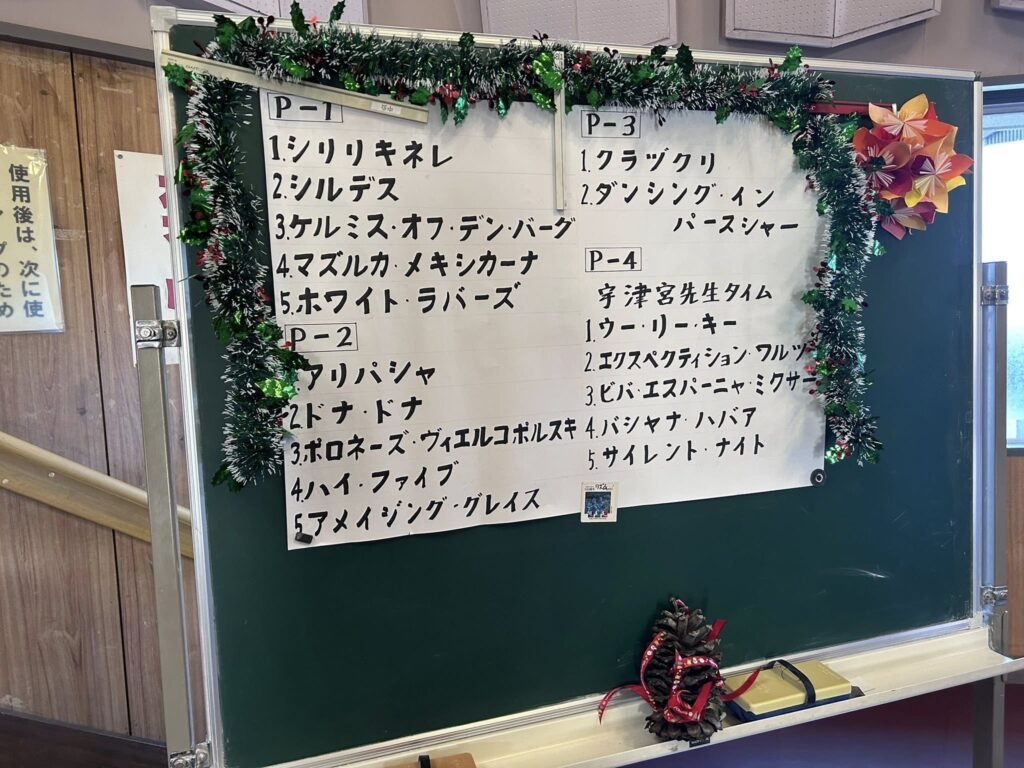 P-1
1.シリリキネレ
2.シルデス
3.ケルミス・オフ・デン・バーグ
4.マズルカ・メキシカーナ
5.ホワイト・ラバーズ
P-2
アリパシャ
2.ドナ・ドナ
3.ポロネーズ・ヴィエルコポルスキ
4.ハイ・ファイブ
5.アメイジング・グレイス
P-3
1.クラヅクリ
2.ダンシング・イン
パースシャー
P-4
宇津宮先生タイム
1.ウー・リー・キー
2.エクスペクティション・ワルツ
3.ビバ・エスパーニャ・ミクサー
4.バシャナ・ハバア
5.サイレント・ナイト
使用後は、次に使
プのため